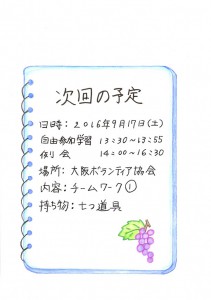 次回の予定
日時：2016年9月17日(土)
自由参加学習 13:30~13:55
例会 14:00~16:30
場所：大阪ボランティア協会
内容：チームワーク①
持ち物：七つ道具